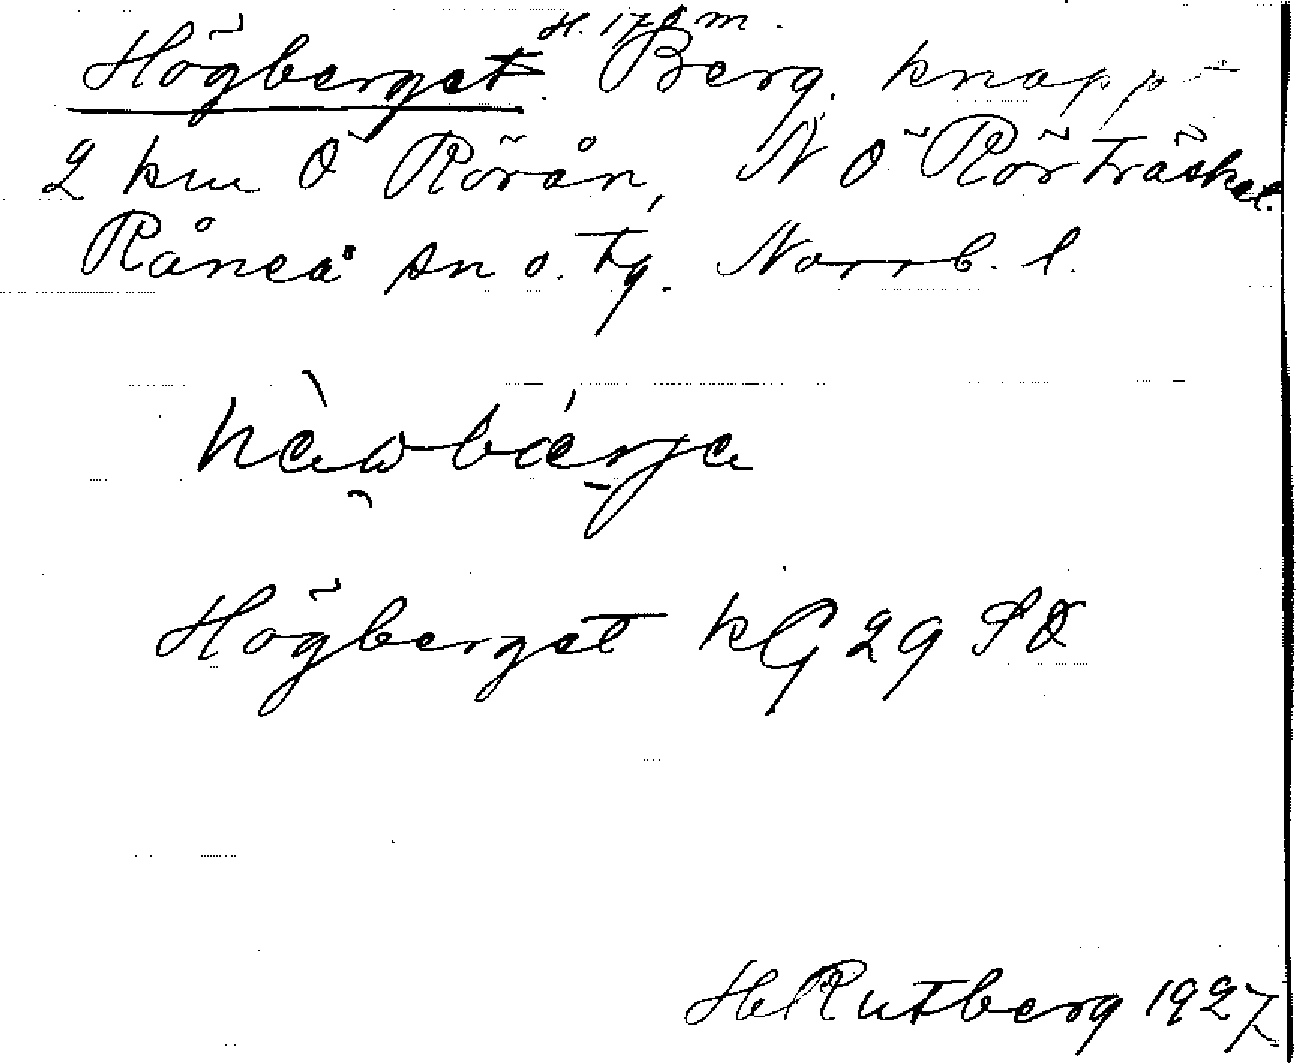 Högberget. Berg, knappt
2 km Ö Rörån, N Ö Rörträsket.
Råneå sn o. tg. Norrb. l.
hàwbárja
Högberget kG 29 SO
H Rutberg 1927